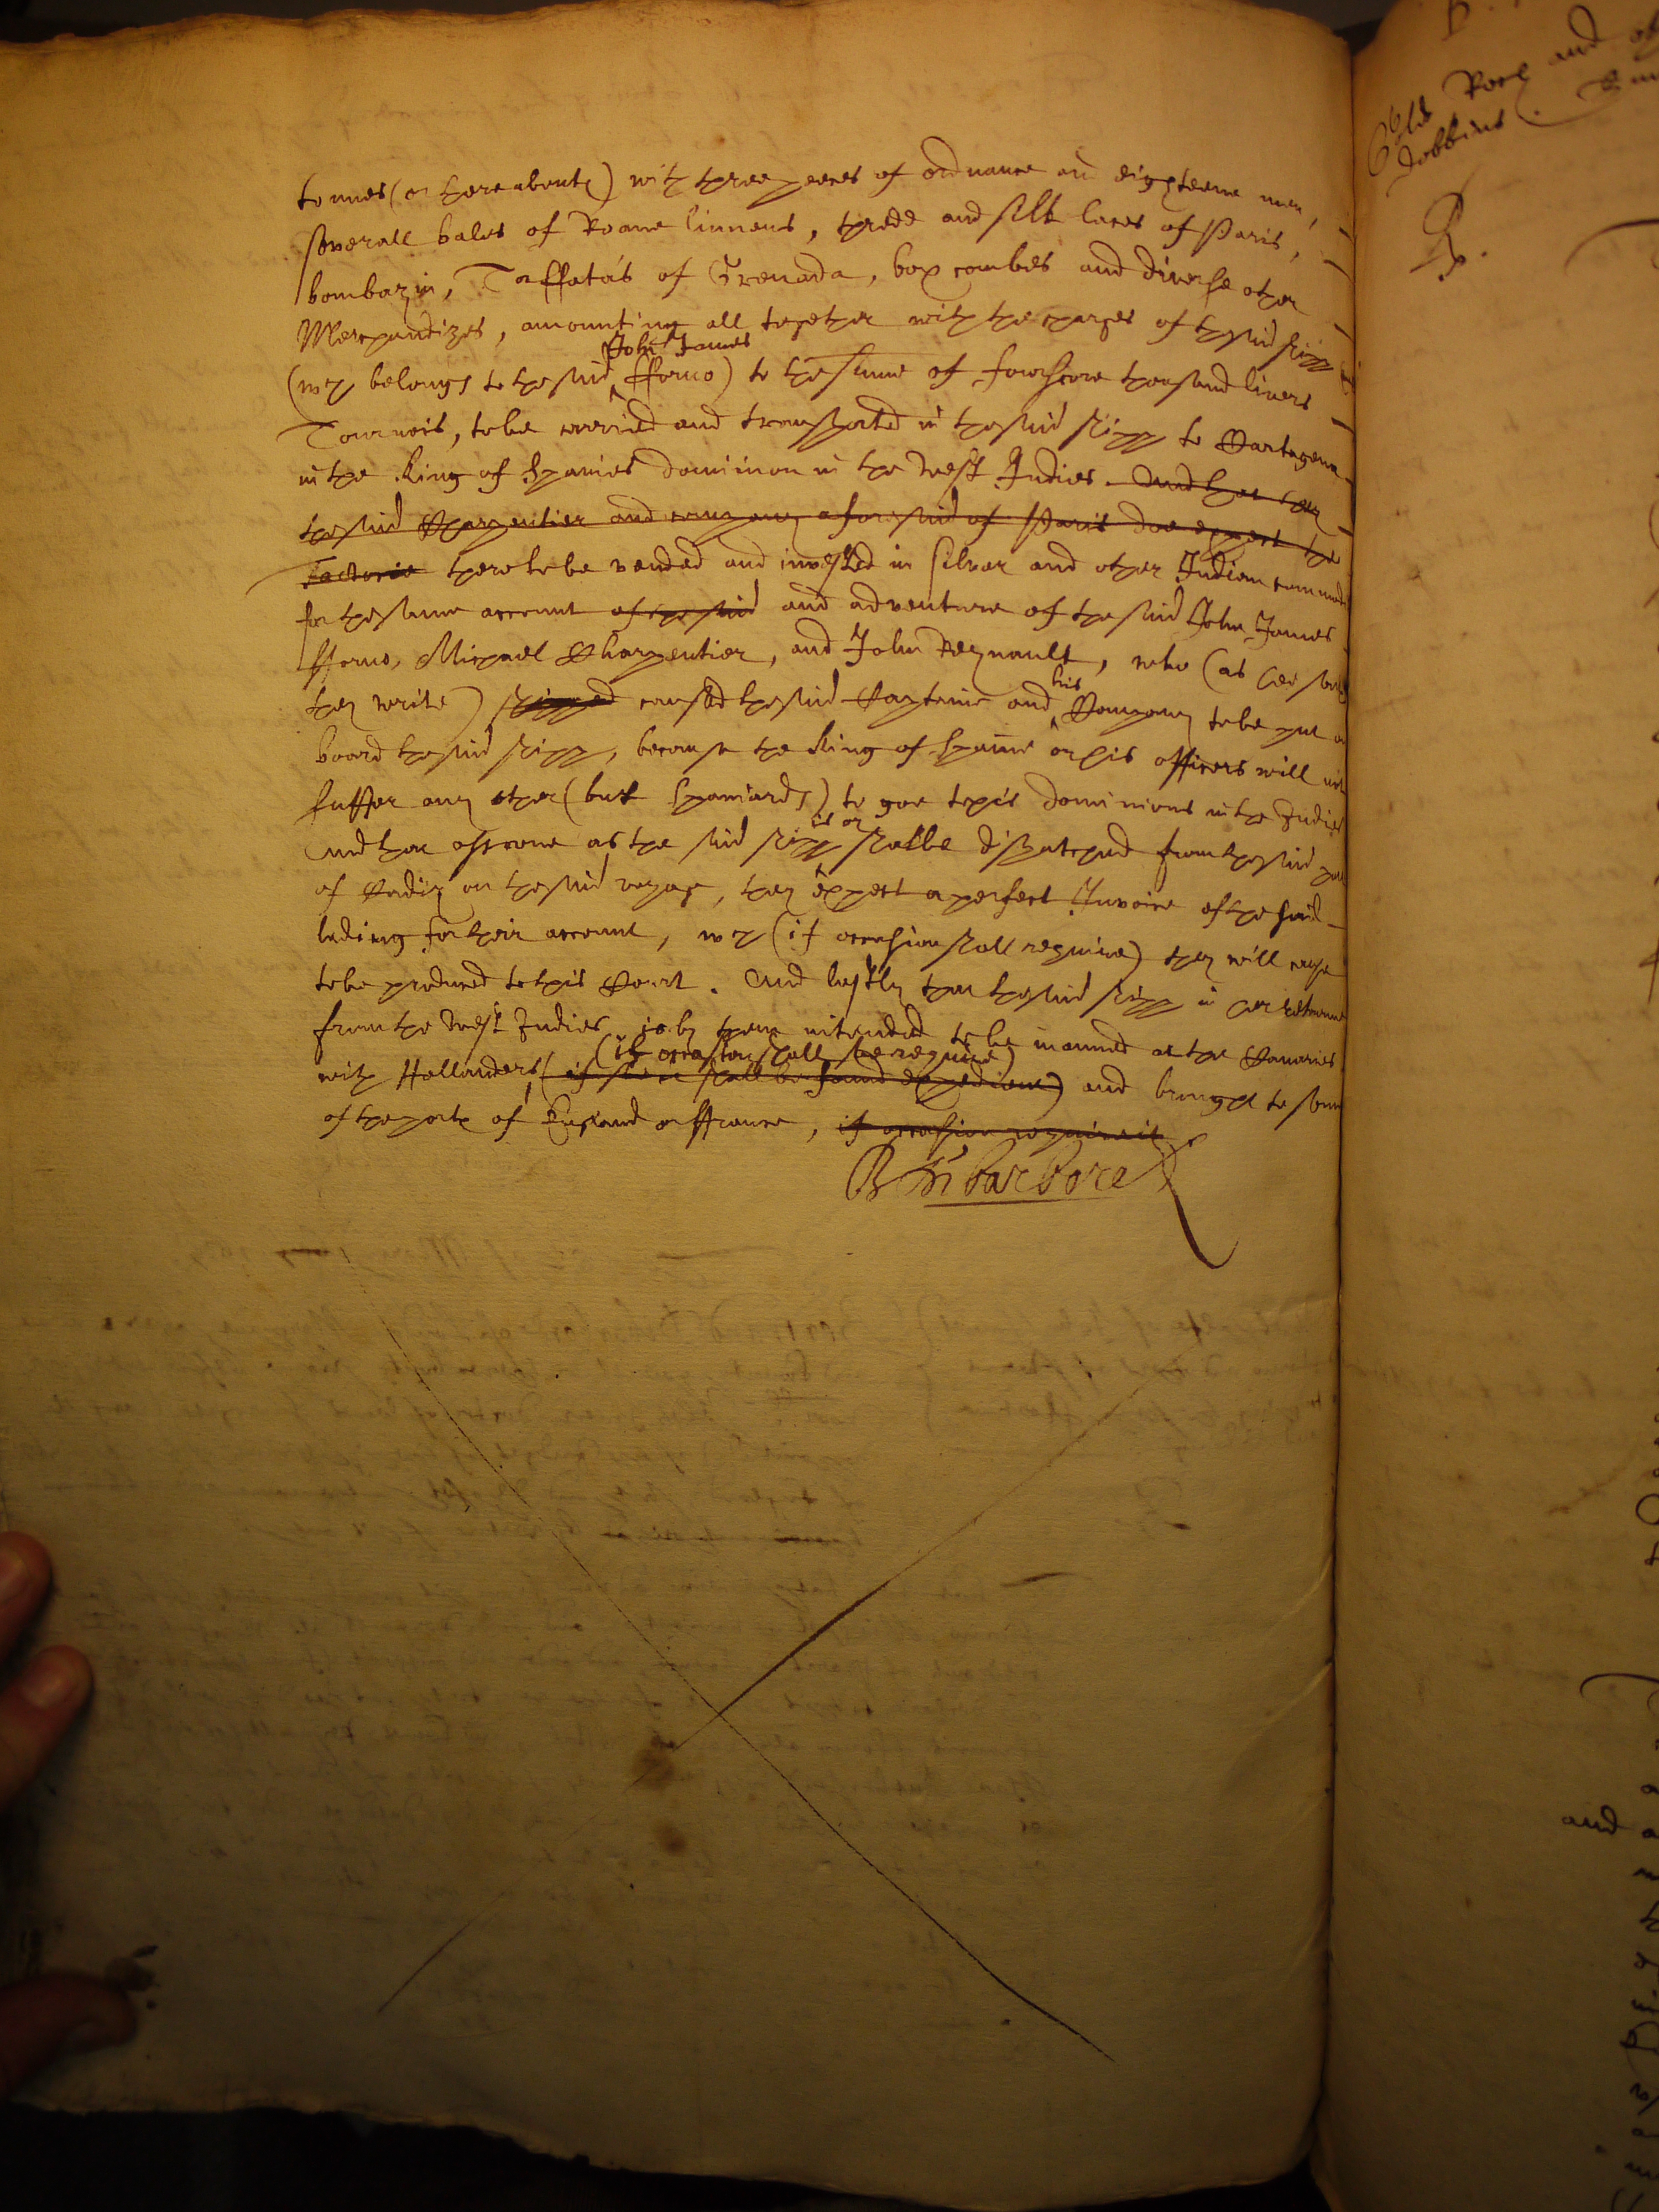 tonnes (or thereabouts) with three peeces of ordnance and eighteene men,
severall bales of Roane linnens, thredd and silk laces of Paris,
bombazin, Taffata's of Grenada, box combes and diverse other
Merchandizes, amounting all together with the charges of the said shipp
(wch belongs to the said John James fforno) to the summe of fourscore thousand livers
Tournois, to be carried and transported in the said shipp to Cartagena
in the King of Spaines dominion in the West Indies. And that they
the said Charpentier and company aforesaid of Paris doe expect the
there to be vended and invested in silver and other Indian commodi
for the same account of the said and adventure of the said John James
fforno, Michael Charpentier, and John Reynault, who (as hee saith
they write) shipped caused the said Captaine and his Company to be put on
board the said shipp, because the King of Spaine or his officers will not
suffer any other (but Spaniards) to goe to his dominions in the Indies
And that assoone as the said shipp is or shalbe dispatched from the said port
of Cadiz on the said voyage, they expect a perfect Invoice of the said
lading for their account, wch (if occasion shall require) they will cause
to be produced to this Court. And lastly that the said shipp in her retourne
from the West Indies is by them intended to be manned at the Canaries
with Hollanders, (if occasion shall soe require) (if shall be found expedient) and brought to some
of the ports of England or ffrance, if occasion require it
and
Dobbins.
R.
and